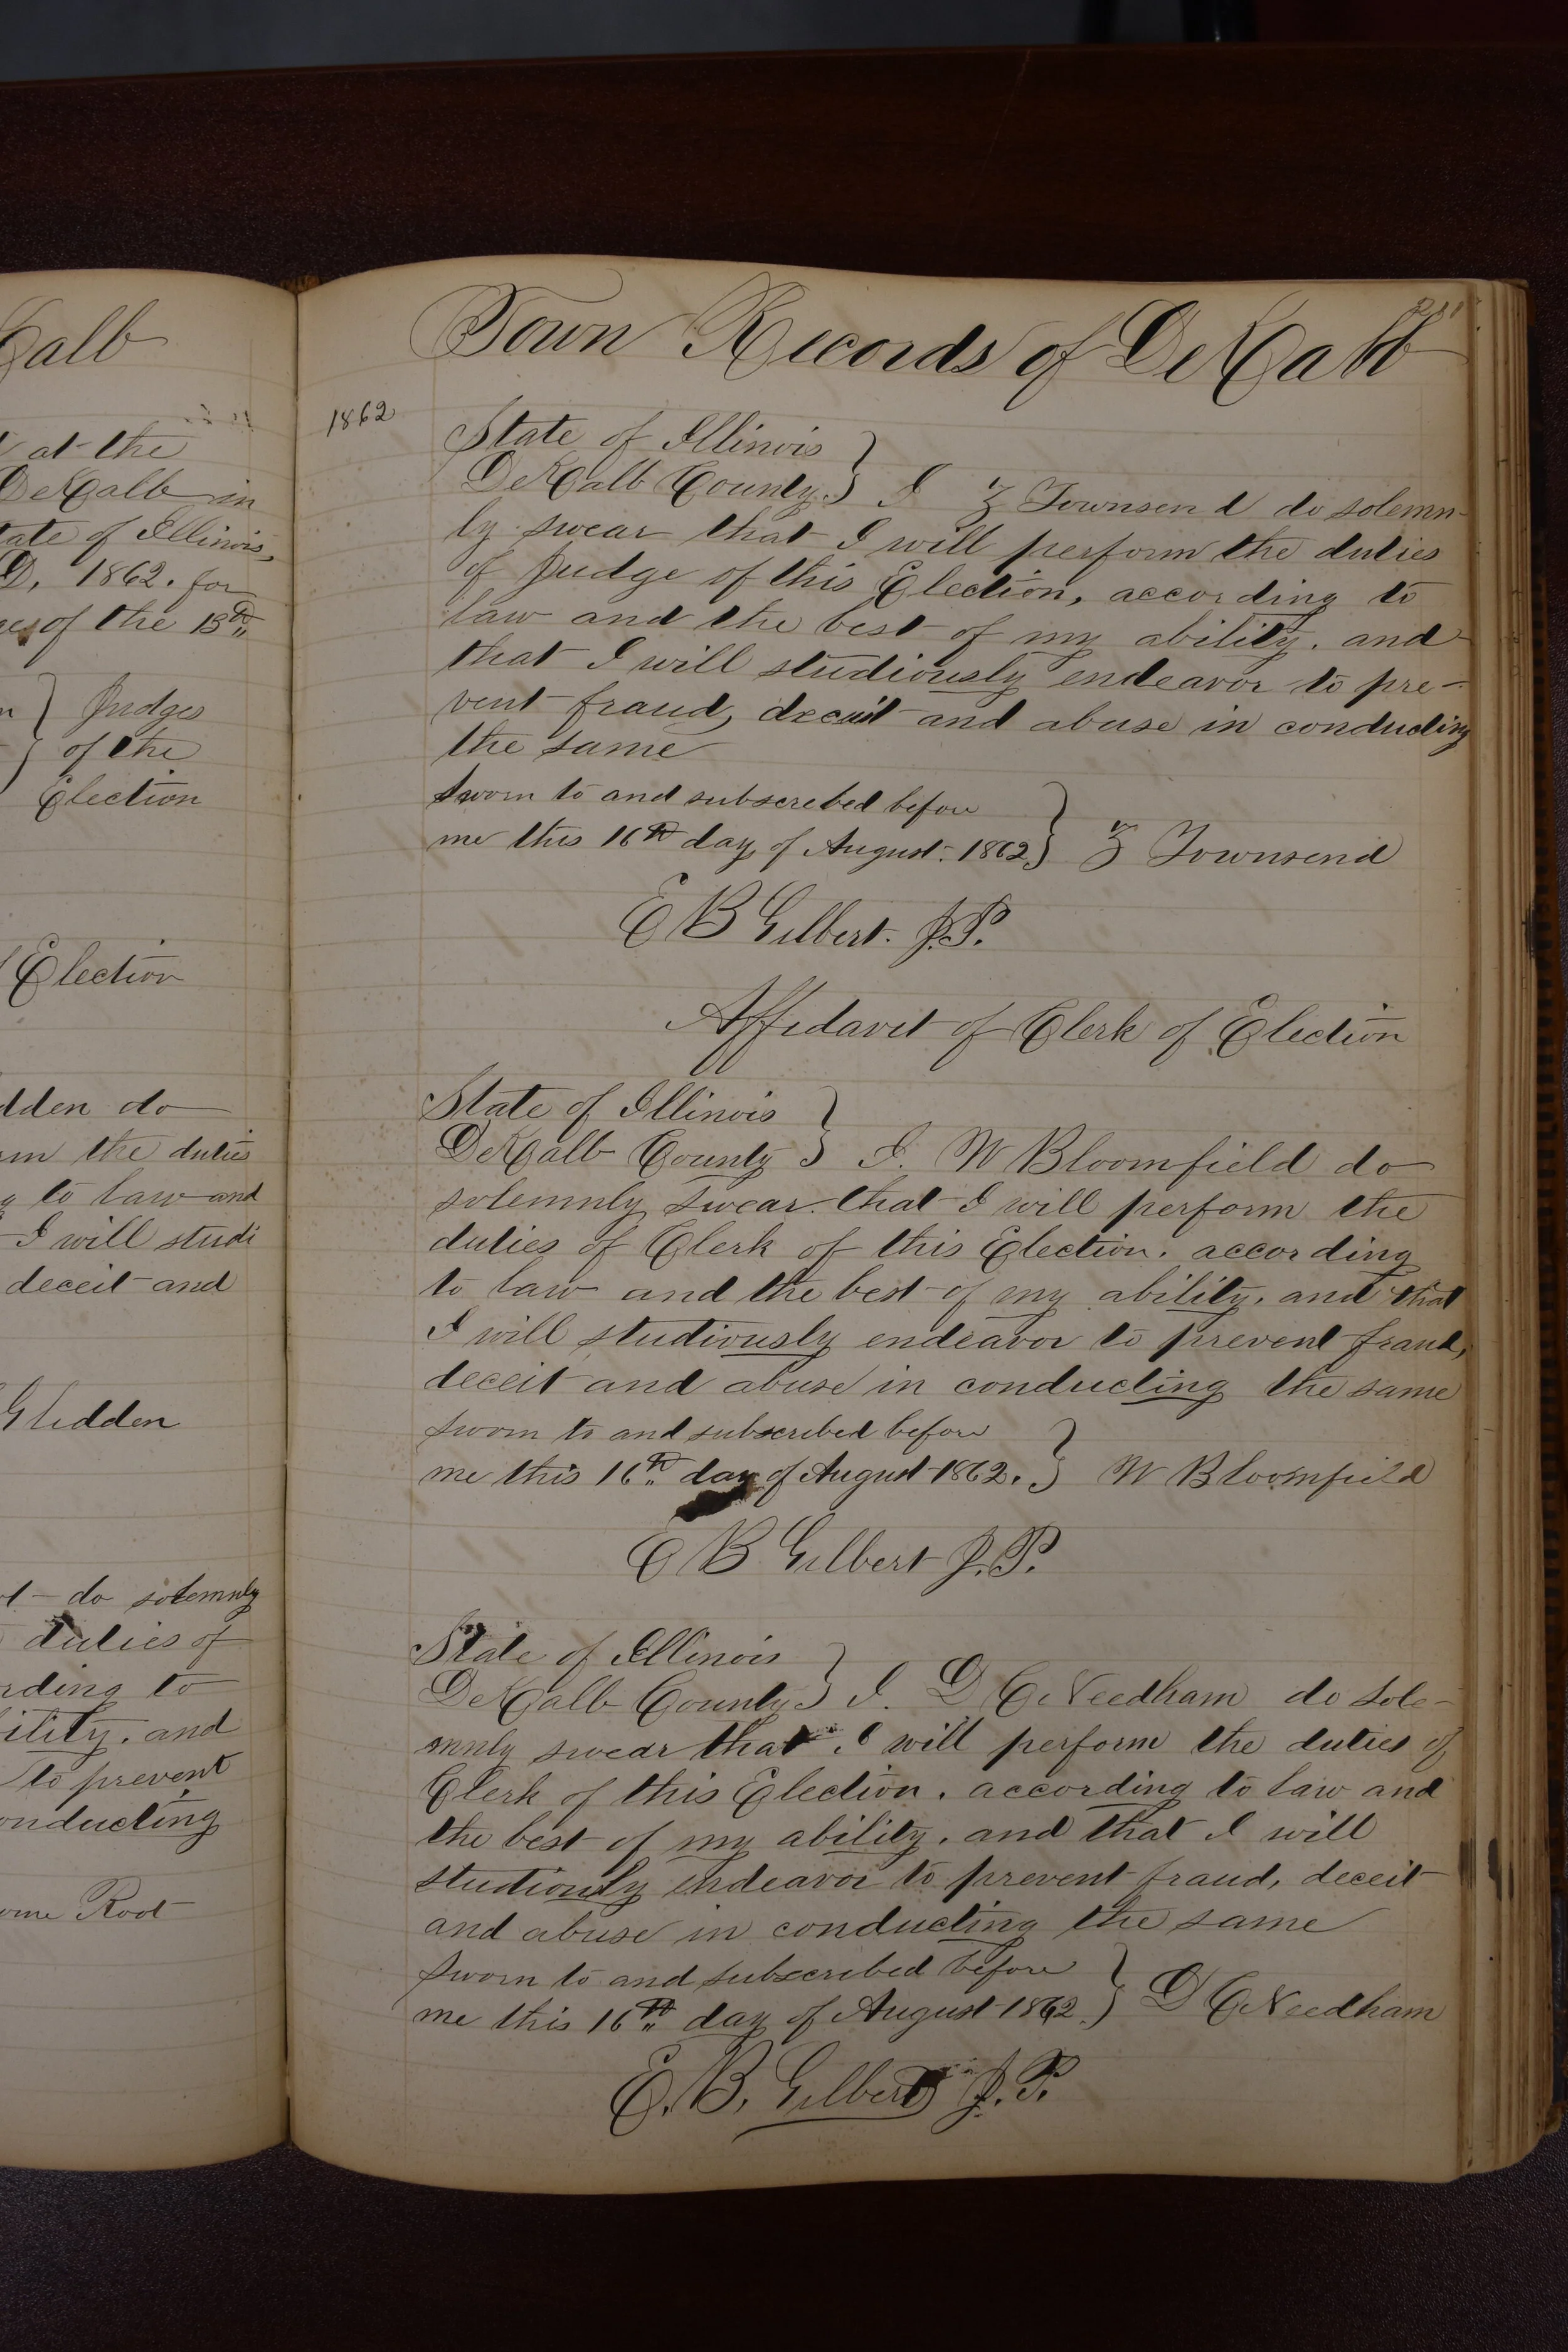 Calb
at the
DeKalb in
tate of Illinois,
D, 1862. for
of the 13th
Judges
of the
Election
Election
dden do
the duties
to law and
I will studi
deceit and
Glidden
do solemnly
duties of
rding to
ility, and
to prevent
onducting
ome Root
Town Records of DeKalb
1862
State of Illinois }
DeKalb County } I Z Townsend do solemn-
ly swear that I will perform the duties
of Judge of this Election, according to
law and the best of my ability, and
that I will studiously endeavor to pre-
vent fraud, deceit and abuse in conducting
the same
Sworn to and subscribed before
me this 16th day of August 1862 } Z Townsend
E B Gilbert. J.P.
Affidavit of Clerk of Election
State of Illinois }
DeKalb County } I. W Bloomfield do
solemnly swear that I will perform the
duties of Clerk of this Election, according
to law and the best of my ability, and that
I will studiously endeavor to prevent fraud,
deceit and abuse in conducting the same
Sworn to and subscribed before
me this 16th day of August 1862. } W Bloomfield
E B Gilbert J.P.
State of Illinois }
DeKalb County } I. D C Needham do sole-
mnly swear that I will perform the duties of
Clerk of this Election, according to law and
the best of my ability, and that I will
studiously endeavor to prevent fraud, deceit
and abuse in conducting the same
Sworn to and subscribed before
me this 16th day of August 1862. } D C Needham
E. B. Gilbert J.P.